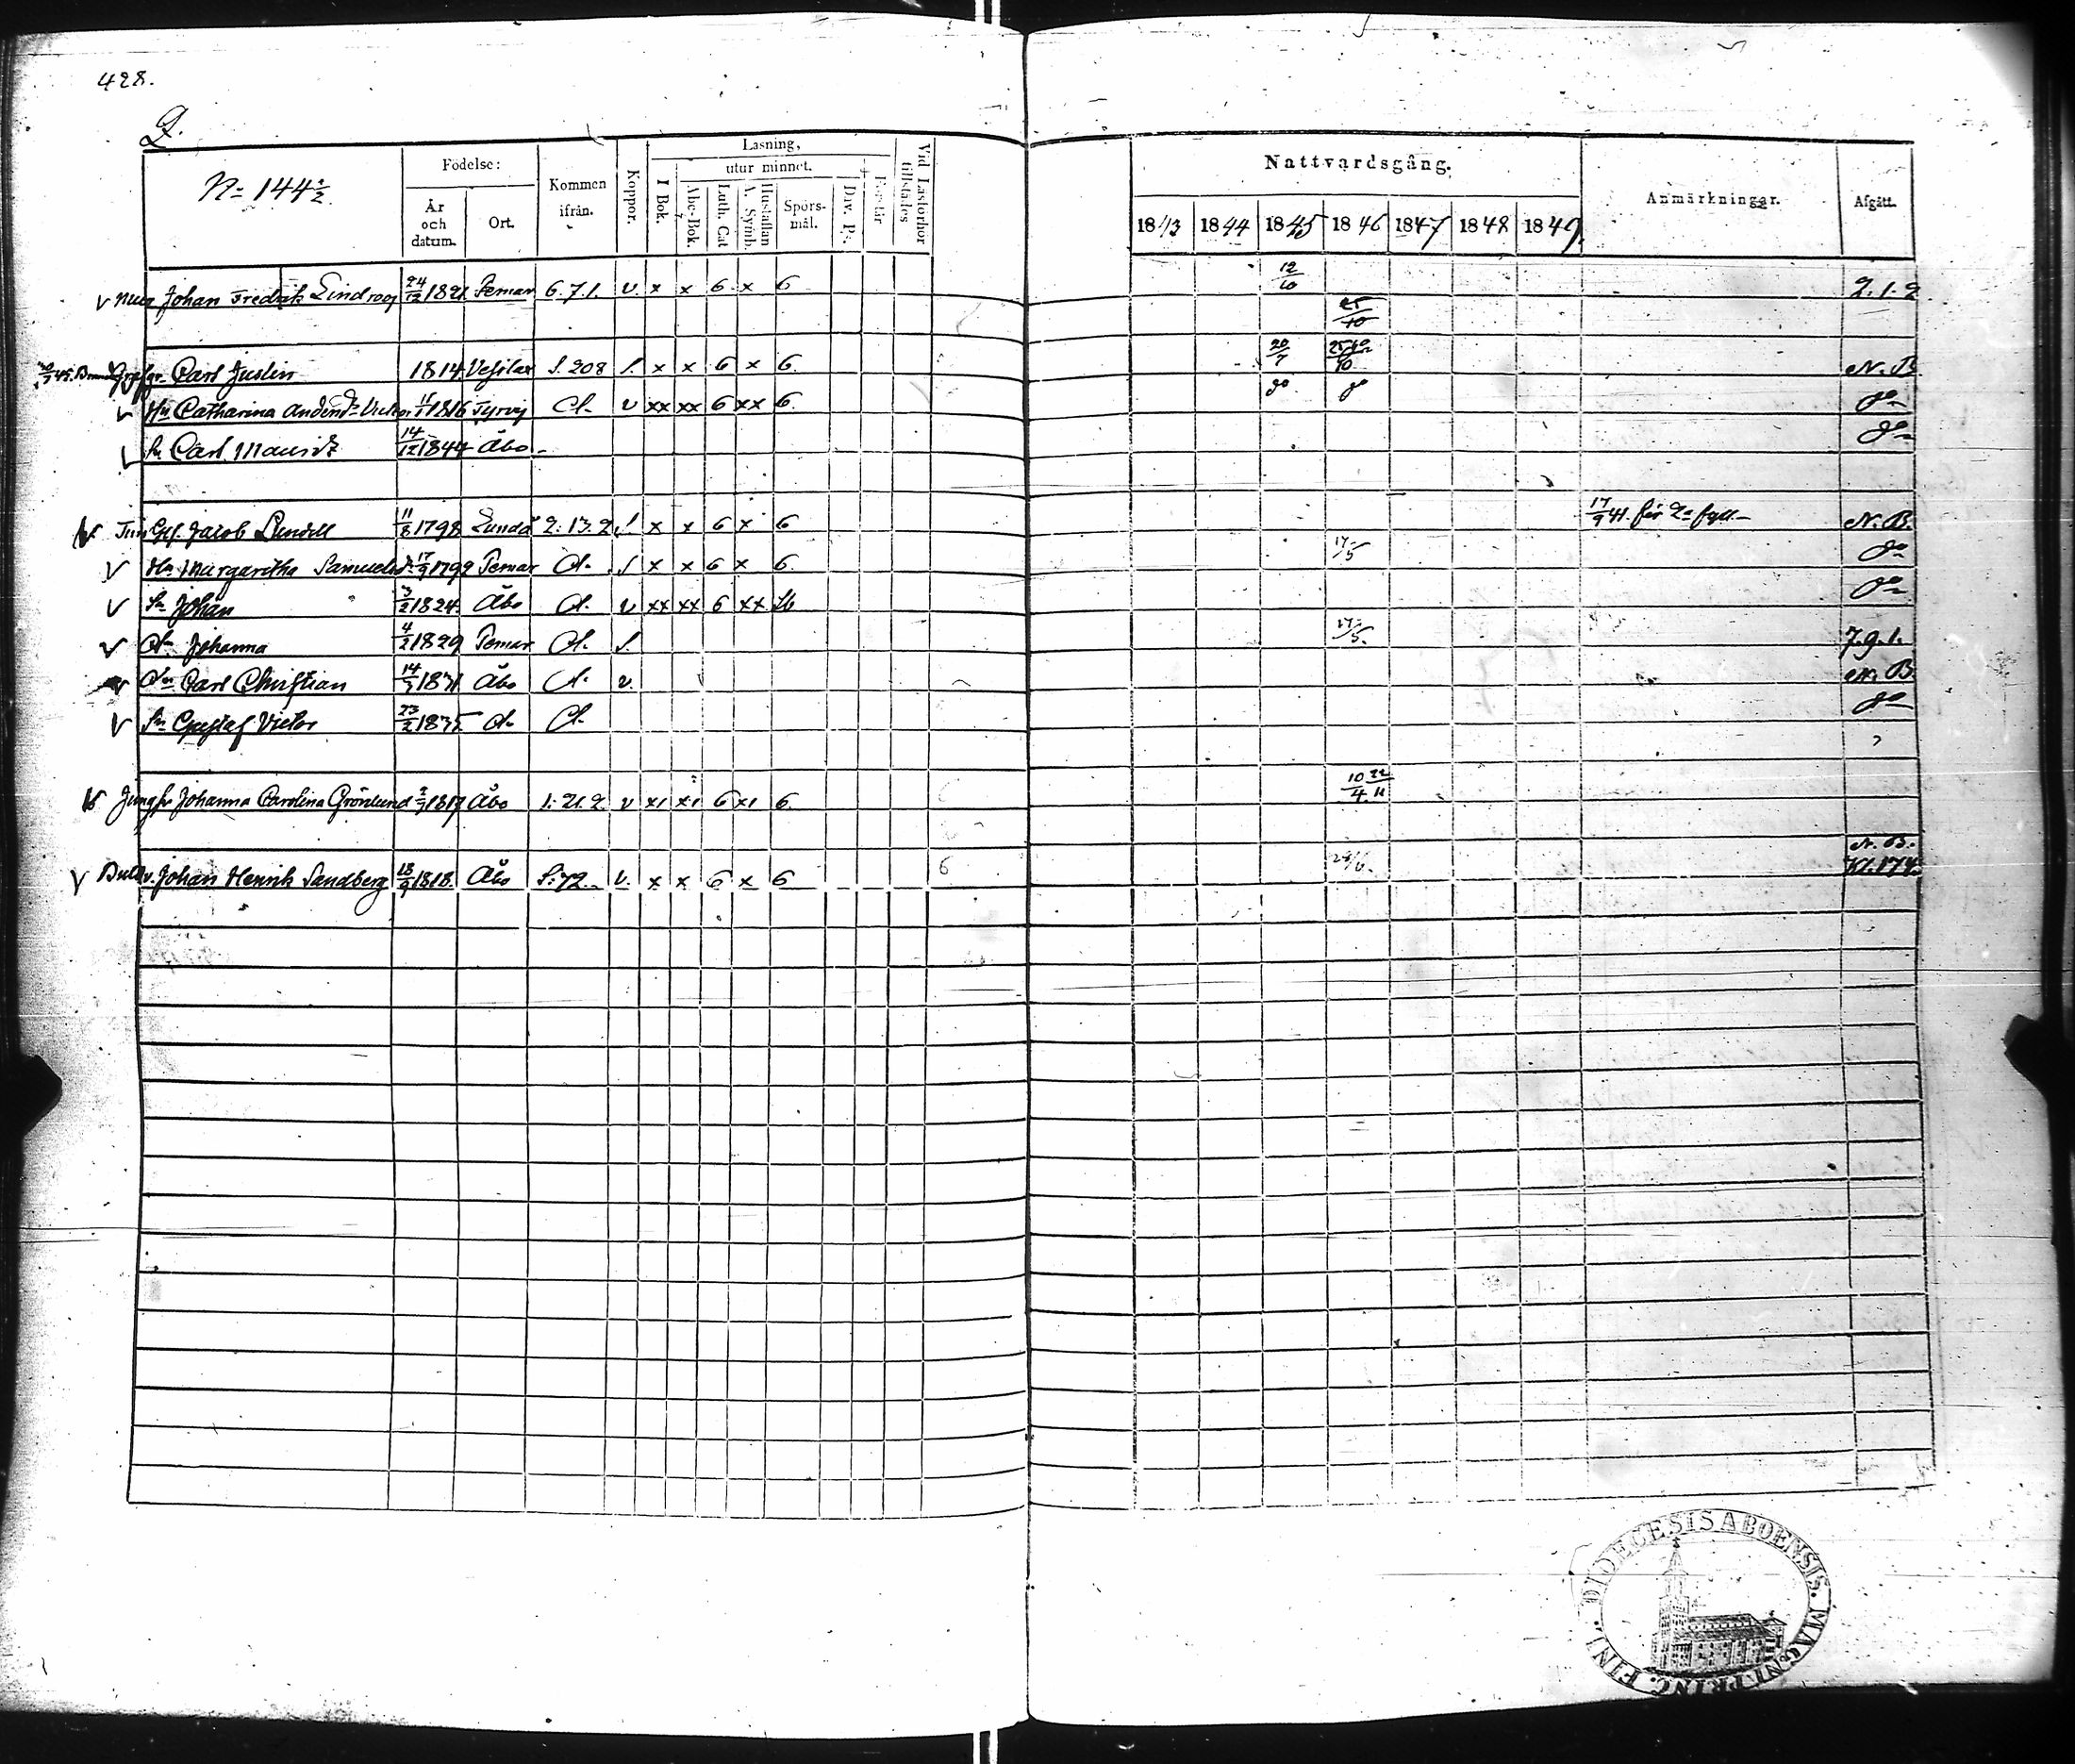 428.
2.
No 144 ½.
Födelse:
År och datum.
Ort.
Kommen ifrån.
Koppor.
Läsning,
I Bok.
utur minnet.
Abc-Bok.
Luth. Cat
Hustaflan A. Symb.
Spörsmål.
Dav. Ps.
Förstår
Vid Läsförhör tillstädes
Nattvardsgång.
1843 1844 1845 1846 1847 1848 1849.
Anmärkningar.
Afgått.
Johan Fredrik Lindroos 24/12 1821 Pemar 6.7.1. v. x x 6 x 6 12/10 25/10 2.1.2
Carl Juslin 1814 Vesilax S. 208 x x 6 x 6 20/7 N. B.
Hu Catharina 1816 Tyrvis v xx xx 6 xx 6 do do do
Sn Carl Mauritz 14/12 1844 Åbo do
Jacob Lundell 11/8 1798 Lundå 2.13.2 x x 6 x 6 17/9 41. för 2a fyll. N. B.
Hu Margaretha Samuelsdr 17/9 1792 Pemar d. x x 6 x 6 17/5 do
Sn Johan 3/2 1824 Åbo d. v xx xx 6 xx do
dr Johanna 4/2 1829 Pemar d. 17/5. 7.9.1.
Carl Christian 1831 Åbo d. v. N. B.
Sn Gustaf Victor 23/2 1835 d. d. do
Jungfr Johanna Carolina Grönlund 1817 Åbo 1.21.2. v x1 x1 6 x1 6 10/4 22/11
Johan Henrik Sandberg 18/9 1818. Åbo S. 72. v. x x 6 x 6 6 24/6. N. B. Kl. 174.
DIOECESIS ABOENSIS. MAGNI. PRINC. FINL.